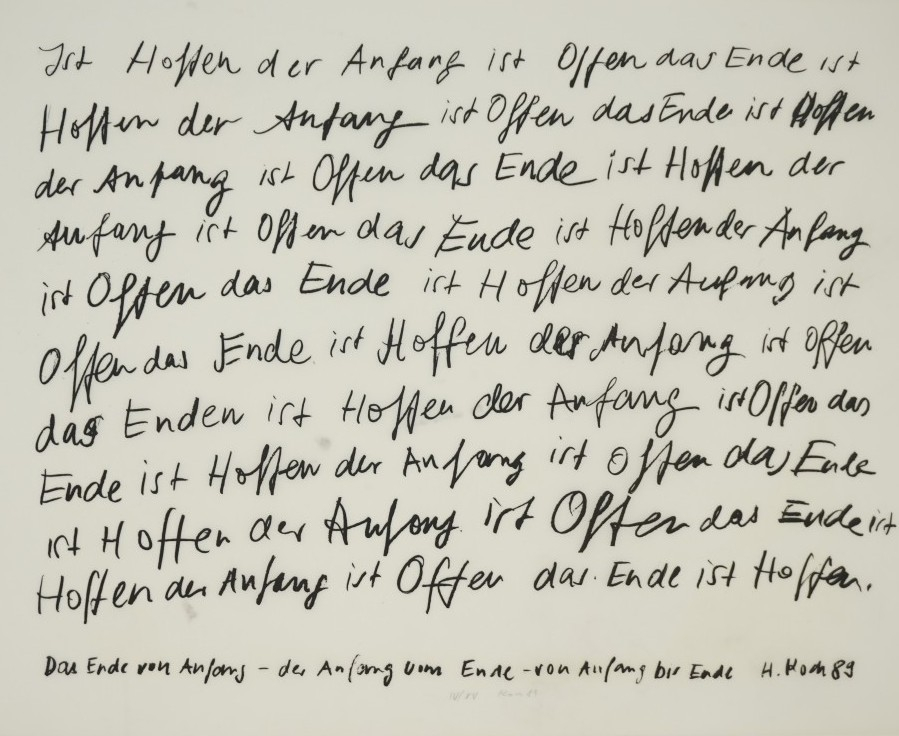 Ist Hoffen der Anfang ist Offen das Ende ist
Hoffen der Anfang ist Offen das Ende ist Hoffen
der Anfang ist Offen das Ende ist Hoffen der
Anfang ist Offen das Ende ist Hoffen der Anfang
ist Offen das Ende ist Hoffen der Anfang ist
Offen das Ende ist Hoffen der Anfang ist Offen
das Enden ist Hoffen der Anfang ist Offen das
Ende ist Hoffen der Anfang ist Offen das Ende
ist Hoffen der Anfang ist Offen das Ende ist
Hoffen der Anfang ist Offen das Ende ist Hoffen.
Das Ende von Anfang - der Anfang vom Ende - von Anfang bis Ende H. Koch 89